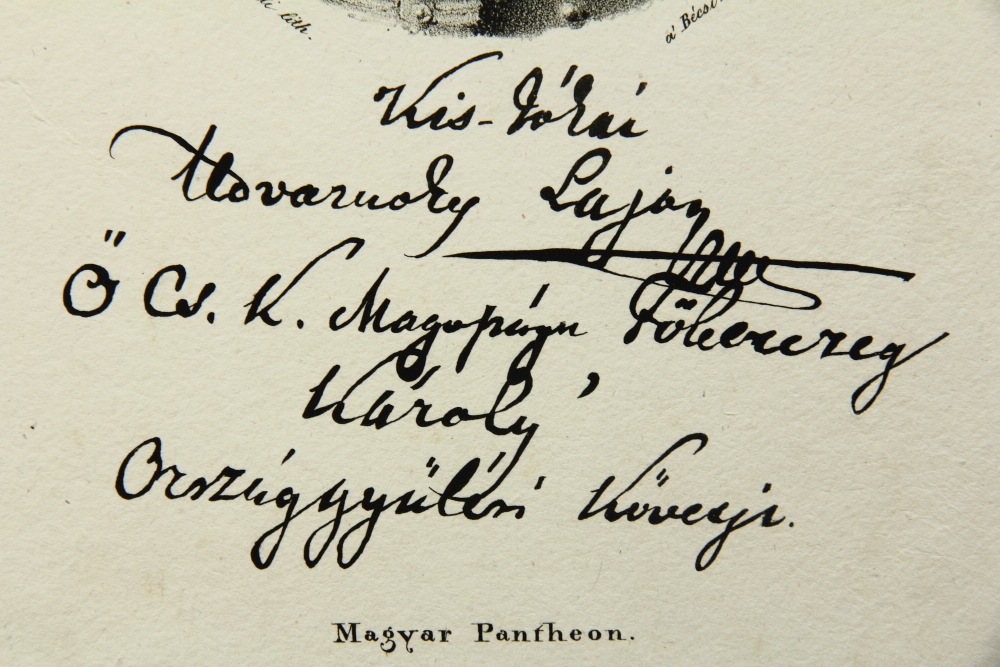 lith.
á Bécsi
Kis-Jókai
Udvarnoky Lajos
Ő Cs. K. Magossága Főherczeg
Károly'
Országgyülési Követje.
Magyar Pantheon.